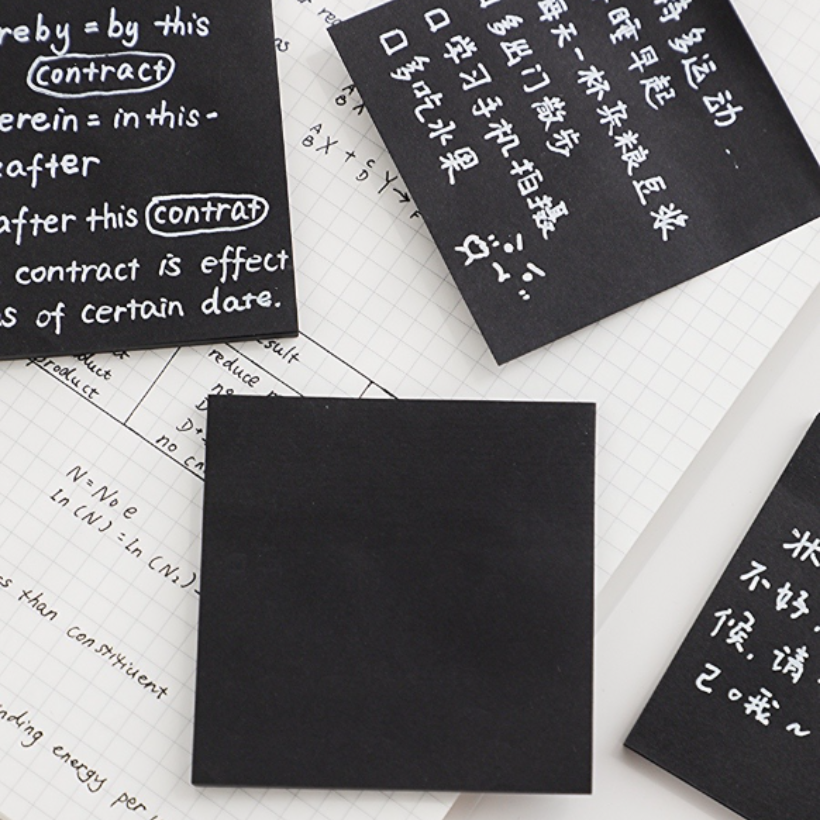 reby = by this
contract
erein = in this-
after
after this contrat
contract is effect
s of certain date.
多运动..
睡早起
每天一杯杂粮豆浆
多出门散步
口学习手机拍摄
口多吃水果
A
B X + C
D Y →
sult
reduce
duct
product
no
D
N = No e
Ln(N) = Ln(N₂) -
s than constituent
nding energy per
状
不好,
候,请
己。我~